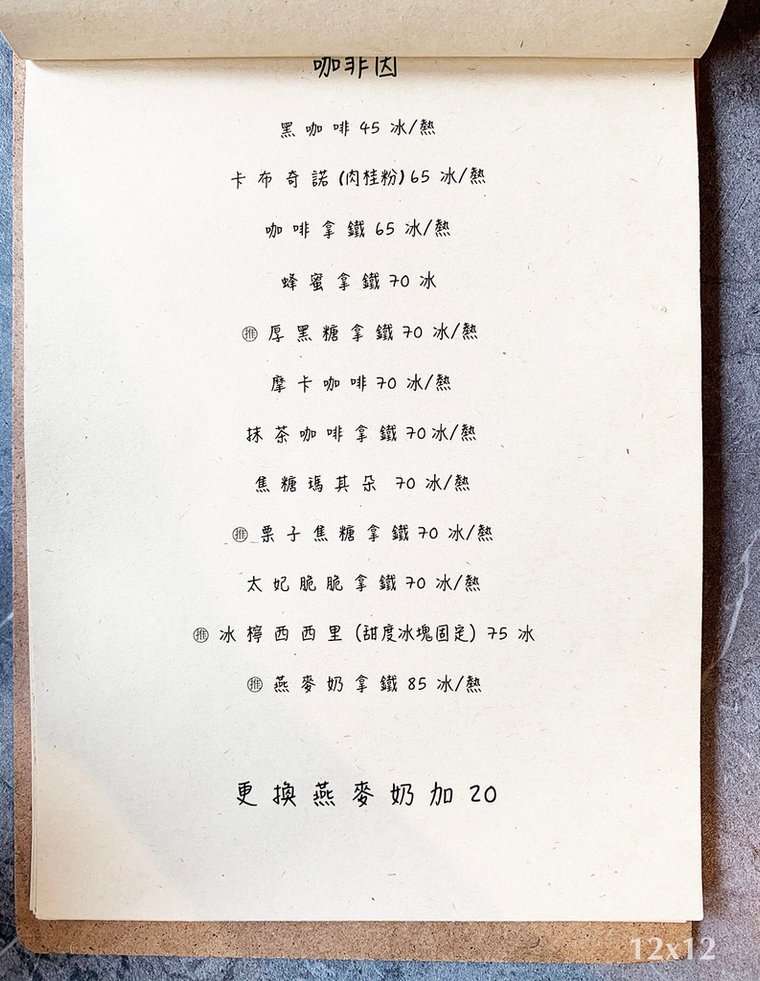 咖非因
黑咖啡 45 冰/熱
卡布奇諾(肉桂粉)65 冰/熱
咖啡拿鐵 65 冰/熱
蜂蜜拿鐵 70 冰
推 厚黑糖拿鐵 70 冰/熱
摩卡咖啡 70 冰/熱
抹茶咖啡拿鐵 70 冰/熱
焦糖瑪其朵 70 冰/熱
推 栗子焦糖拿鐵 70 冰/熱
太妃脆脆拿鐵 70 冰/熱
推 冰檸西西里(甜度冰塊固定)75 冰
推 燕麥奶拿鐵 85 冰/熱
更換燕麥奶加 20
12x12